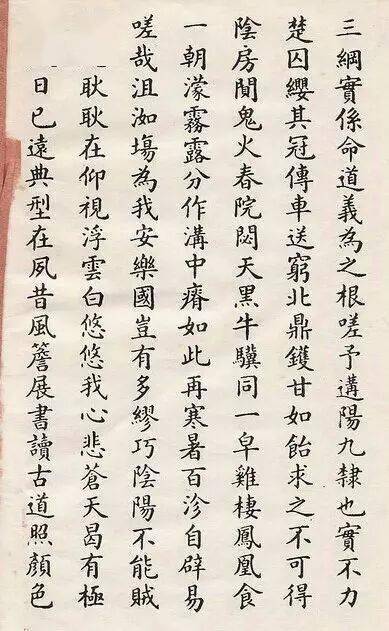 三綱實係命道義為之根嗟予遘陽九隸也實不力
楚囚纓其冠傳車送窮北鼎鑊甘如飴求之不可得
陰房闃鬼火春院閟天黑牛驥同一皁雞棲鳳凰食
一朝濛霧露分作溝中瘠如此再寒暑百沴自辟易
嗟哉沮洳場為我安樂國豈有多繆巧陰陽不能賊
耿耿在仰視浮雲白悠悠我心悲蒼天曷有極
日已遠典型在夙昔風簷展書讀古道照顏色